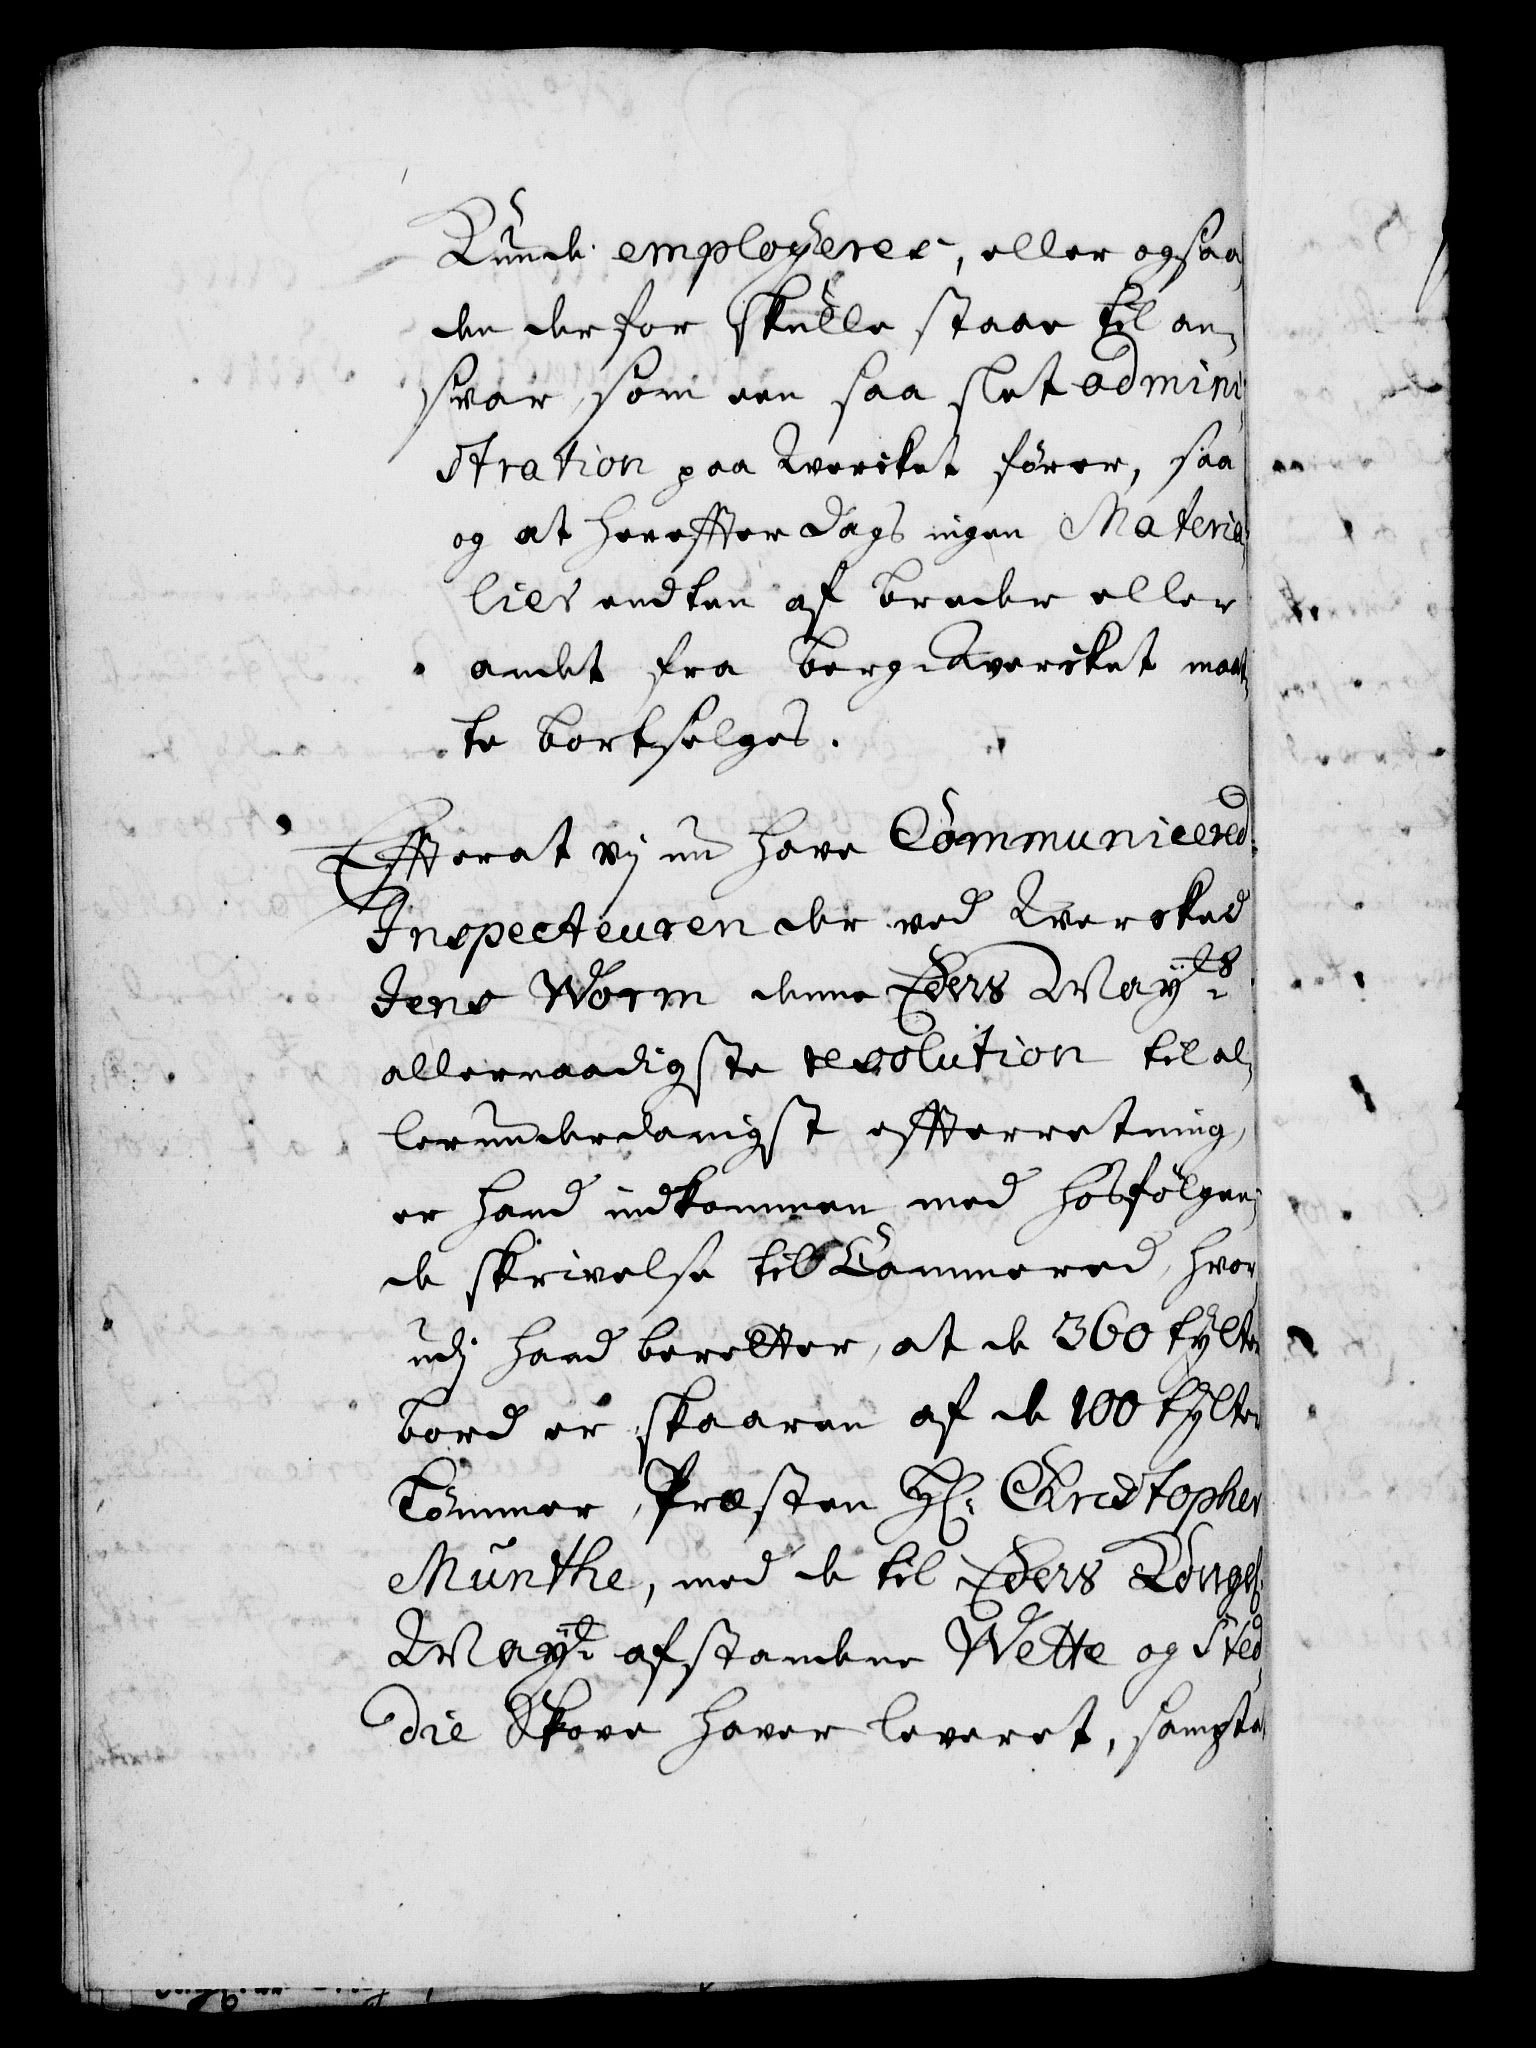 Kunde employeres, eller ogsaa
den derfor skulle staae til an-
svar, som een saa slet admini-
stration paa Werket fører, saa
og at hereffter dags ingen Materia-
lier endten af breder eller
andet fra bergWerket maat-
te bortselges.
Effterat vj nu have Communicered
Inspecteuren der ved Werked
Jens Worm denne Eders Mayts
allernaadigste resolution til al-
lerunderdanigst effterretning,
er hand indkommen med hosfølgen-
de skrivelse til Cammered, hvor
udj hand beretter, at de 360 tylter
bord er skaaren af de 100 tylter
Tømmer, Præsten Hr: Christopher
Munthe, med de til Eders Kongel:
Mayt afstandene Wette og Sted
die Skove haver leveret, sampt at